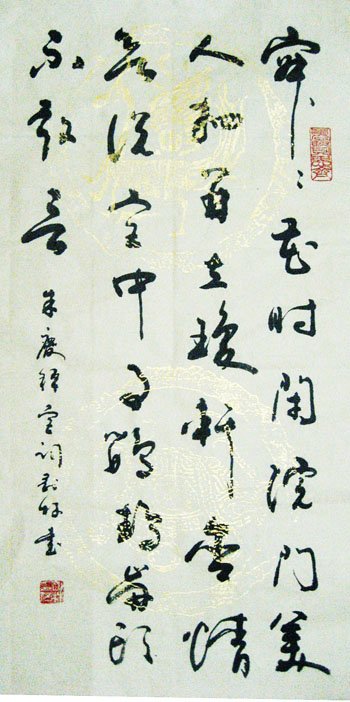 寂寂花时閉院门美
人相並立瓊軒含情
欲说宫中事鹦鹉前头
不敢言
朱慶餘宫词书